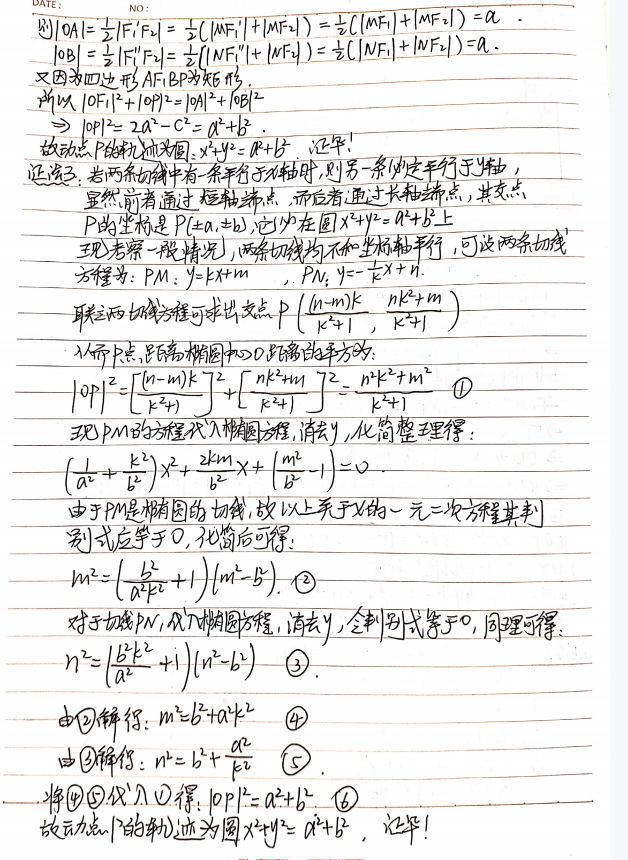 DATE: NO:
则|OA|=½|F₁'F₂|=½(|MF₁'|+|MF₂|)=½(|MF₁|+|MF₂|)=a.
|OB|=½|F₁''F₂|=½(|NF₁''|+|NF₂|)=½(|NF₁|+|NF₂|)=a.
又因为四边形AF₁BP为矩形,
所以|OF₁|²+|OP|²=|OA|²+|OB|²
⇒ |OP|²=2a²-c²=a²+b².
故动点P的轨迹为圆:x²+y²=a²+b². 证毕!
证法3:若两条切线中有一条平行于x轴时,则另一条必定平行于y轴,
显然前者通过短轴端点,而后者通过长轴端点,其交点
P的坐标是P(±a,±b),它必在圆x²+y²=a²+b²上
现考察一般情况,两条切线均不和坐标轴平行,可设两条切线
方程为:PM:y=kx+m , PN:y=-1/k x+n.
联立两切线方程可求出交点P((n-m)k/(k²+1), (nk²+m)/(k²+1))
从而P点距离椭圆中心O距离的平方为:
|OP|²=[(n-m)k/(k²+1)]²+[(nk²+m)/(k²+1)]²=(n²k²+m²)/(k²+1) ①
现PM的方程代入椭圆方程,消去y,化简整理得:
(1/a²+k²/b²)x²+2km/b² x+(m²/b²-1)=0.
由于PM是椭圆的切线,故以上关于x的一元二次方程其判
别式应等于0,化简后可得:
m²=(b²/(a²k²)+1)(m²-b²). ②
对于切线PN,代入椭圆方程,消去y,令判别式等于0,同理可得:
n²=(b²k²/a²+1)(n²-b²) ③.
由②解得:m²=b²+a²k² ④
由③解得:n²=b²+a²/k² ⑤.
将④⑤代入①得:|OP|²=a²+b². ⑥
故动点P的轨迹为圆x²+y²=a²+b², 证毕!